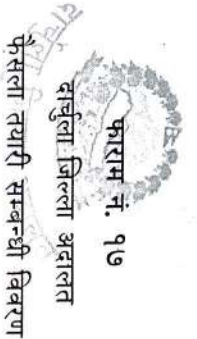 फाराम नं. १७
दार्चुला जिल्ला अदालत
फैसला तयारी सम्बन्धी विवरण